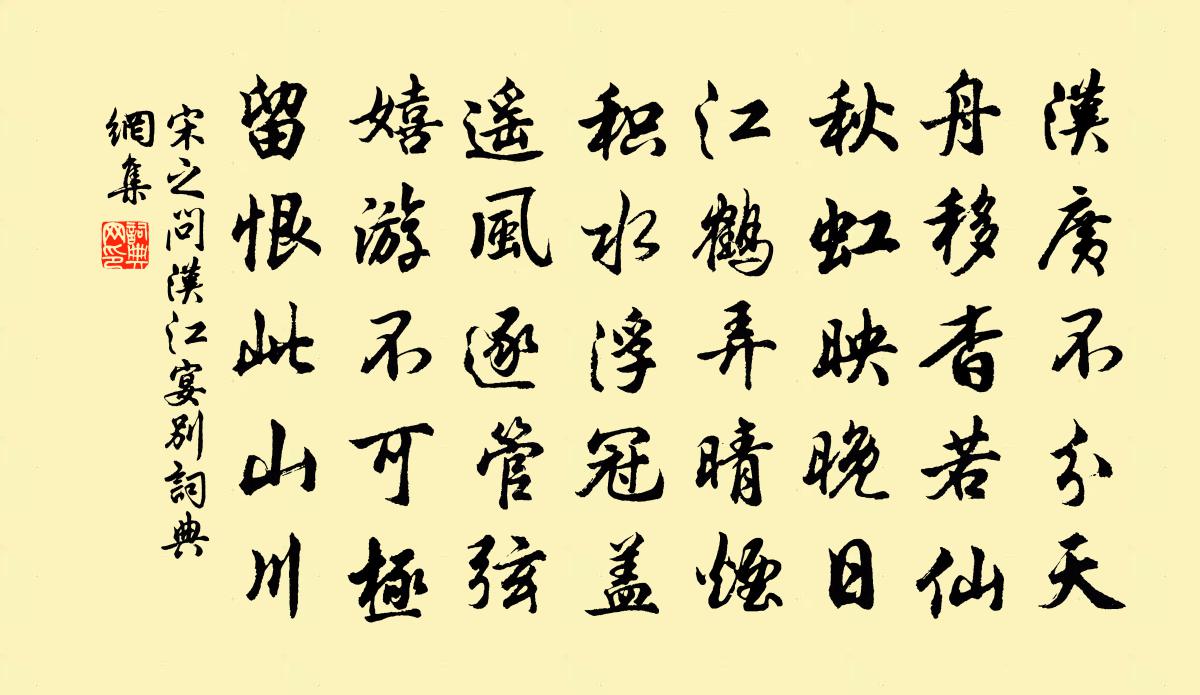 漢廣不分天
舟移杳若仙
秋虹映晚日
江鶴弄晴煙
积水浮冠盖
遥風逐管弦
嬉游不可極
留恨此山川
宋之問漢江宴别詞典
網集
詞典網印